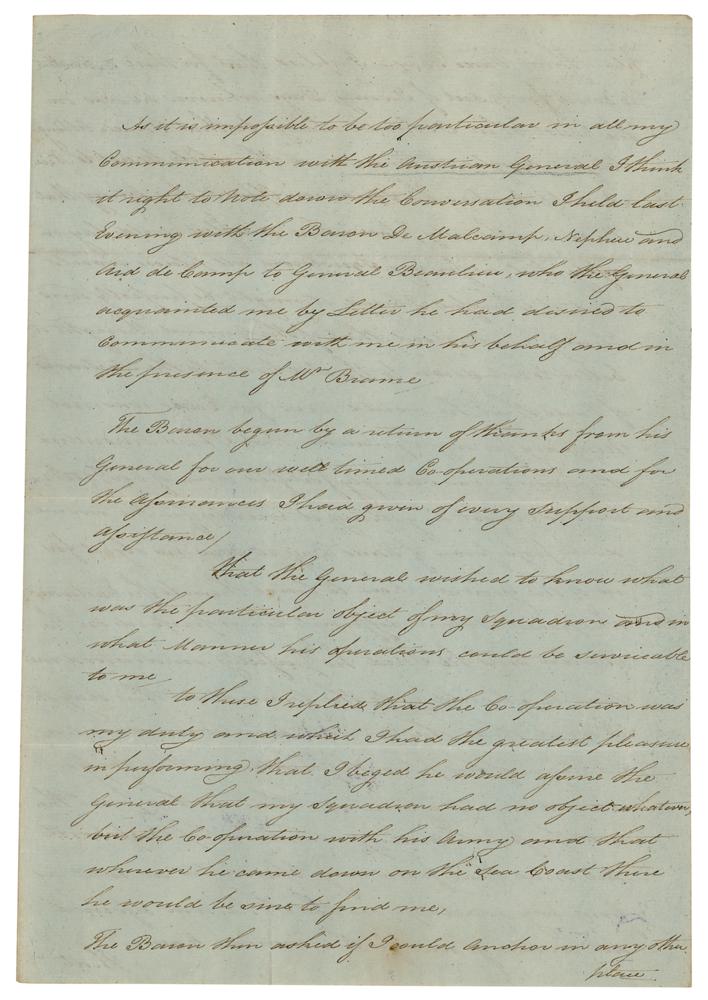 As it is impossible to be too particular in all my
Communication with the Austrian General I think
it right to note down the Conversation I held last
Evening with the Baron De Malcamp, Nephew and
Aid de Camp to General Beaulieu, who the General
acquainted me by Letter he had desired to
Communicate with me in his behalf and in
the presence of Mr Brame
The Baron begun by a return of thanks from his
General for our well timed Co-operations and for
the assurances I had given of every support and
assistance,
that the General wished to know what
was the particular object of my Squadron and in
what Manner his operations could be serviceable
to me,
to these I replied that the Co-operation was
my duty and which I had the greatest pleasure
in performing, that I beged he would assure the
General that my Squadron had no object whatever,
but the Co-operation with his Army and that
wherever he came down on the Sea Coast there
he would be sure to find me,
The Baron then asked if I could Anchor in any other
place